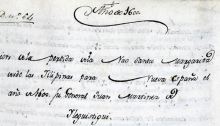 Año de 1600.
cion de la perdida de la Nao Santa Margarita
de las Filipinas para Nueva España el
año de 1600. su General Juan Martinez de
Neguistigui.